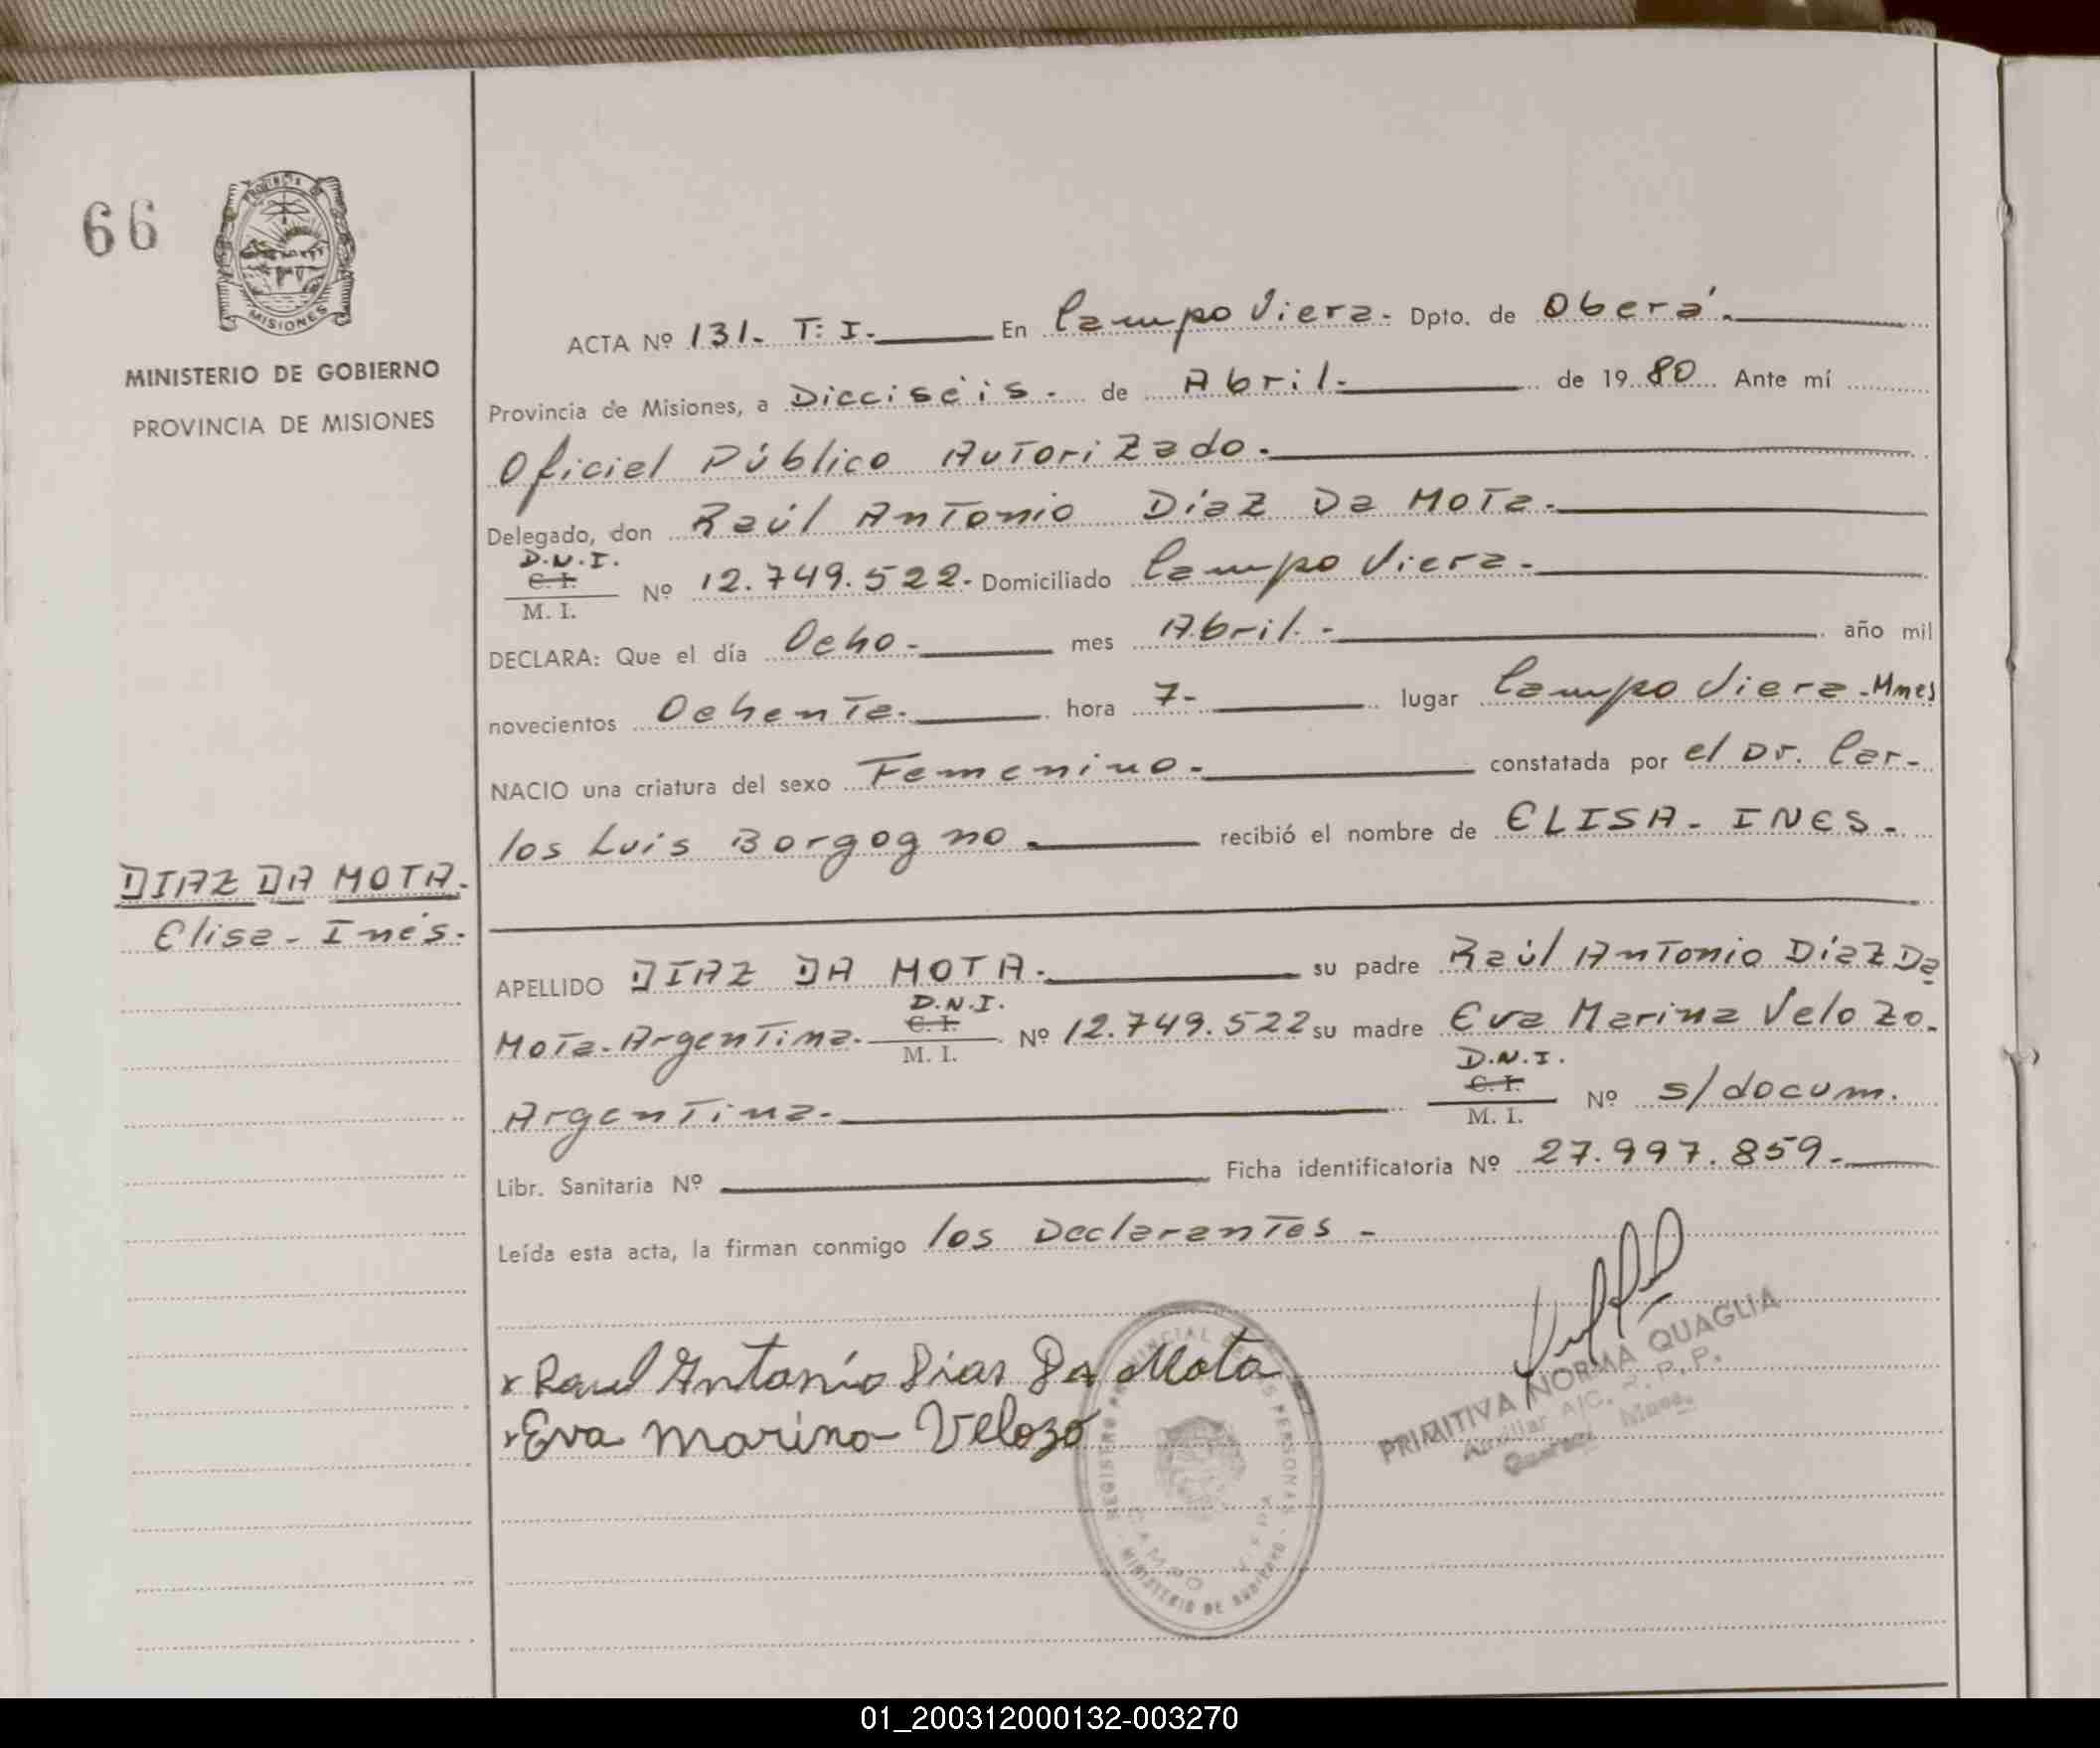 66
PROVINCIA DE
MISIONES
MINISTERIO DE GOBIERNO
PROVINCIA DE MISIONES
ACTA Nº 131. T: I. En Campo Viera. Dpto. de Oberá.
Provincia de Misiones, a Dieciséis. de Abril. de 19 80 Ante mí
Oficial Público Autorizado.
Delegado, don Raúl Antonio Díaz Da Mota.
D.N.I.
C. I.
M. I.
Nº 12.749.522. Domiciliado Campo Viera.
DECLARA: Que el día Ocho. mes Abril. año mil
novecientos Ochenta. hora 7. lugar Campo Viera - Mnes
NACIO una criatura del sexo Femenino. constatada por el Dr. Car-
los Luis Borgogno. recibió el nombre de ELISA - INES.
DIAZ DA MOTA.
Elisa - Inés.
APELLIDO DIAZ DA MOTA. su padre Raúl Antonio Díaz Da
D.N.I.
C. I.
M. I.
Mota - Argentina. Nº 12.749.522 su madre Eva Marina Velozo.
D.N.I.
C. I.
M. I.
Argentina. Nº s/docum.
Libr. Sanitaria Nº Ficha identificatoria Nº 27.997.859.
Leída esta acta, la firman conmigo los Declarantes -
x Raul Antonio Dias Da Mota
x Eva Marina Velozo
REGISTRO PROVINCIAL DE LAS PERSONAS
CAMPO VIERA
MINISTERIO DE GOBIERNO
PRIMITIVA NORMA QUAGLIA
Auxiliar A/C. R. P. P.
Mnes.
01_200312000132-003270